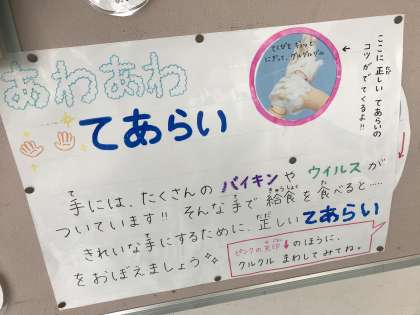 あわあわ
てあらい
てくびを ギュッと
にぎって、グルグルグル
ここに正しい てあらいの
コツが でてくるよ!!
手には、たくさんの バイキンや ウイルスが
ついています!! そんな手で給食を食べると……
きれいな手にするために、正しい てあらい
をおぼえましょう
ピンクの矢印↓のほうに、
クルクル まわしてみてね。